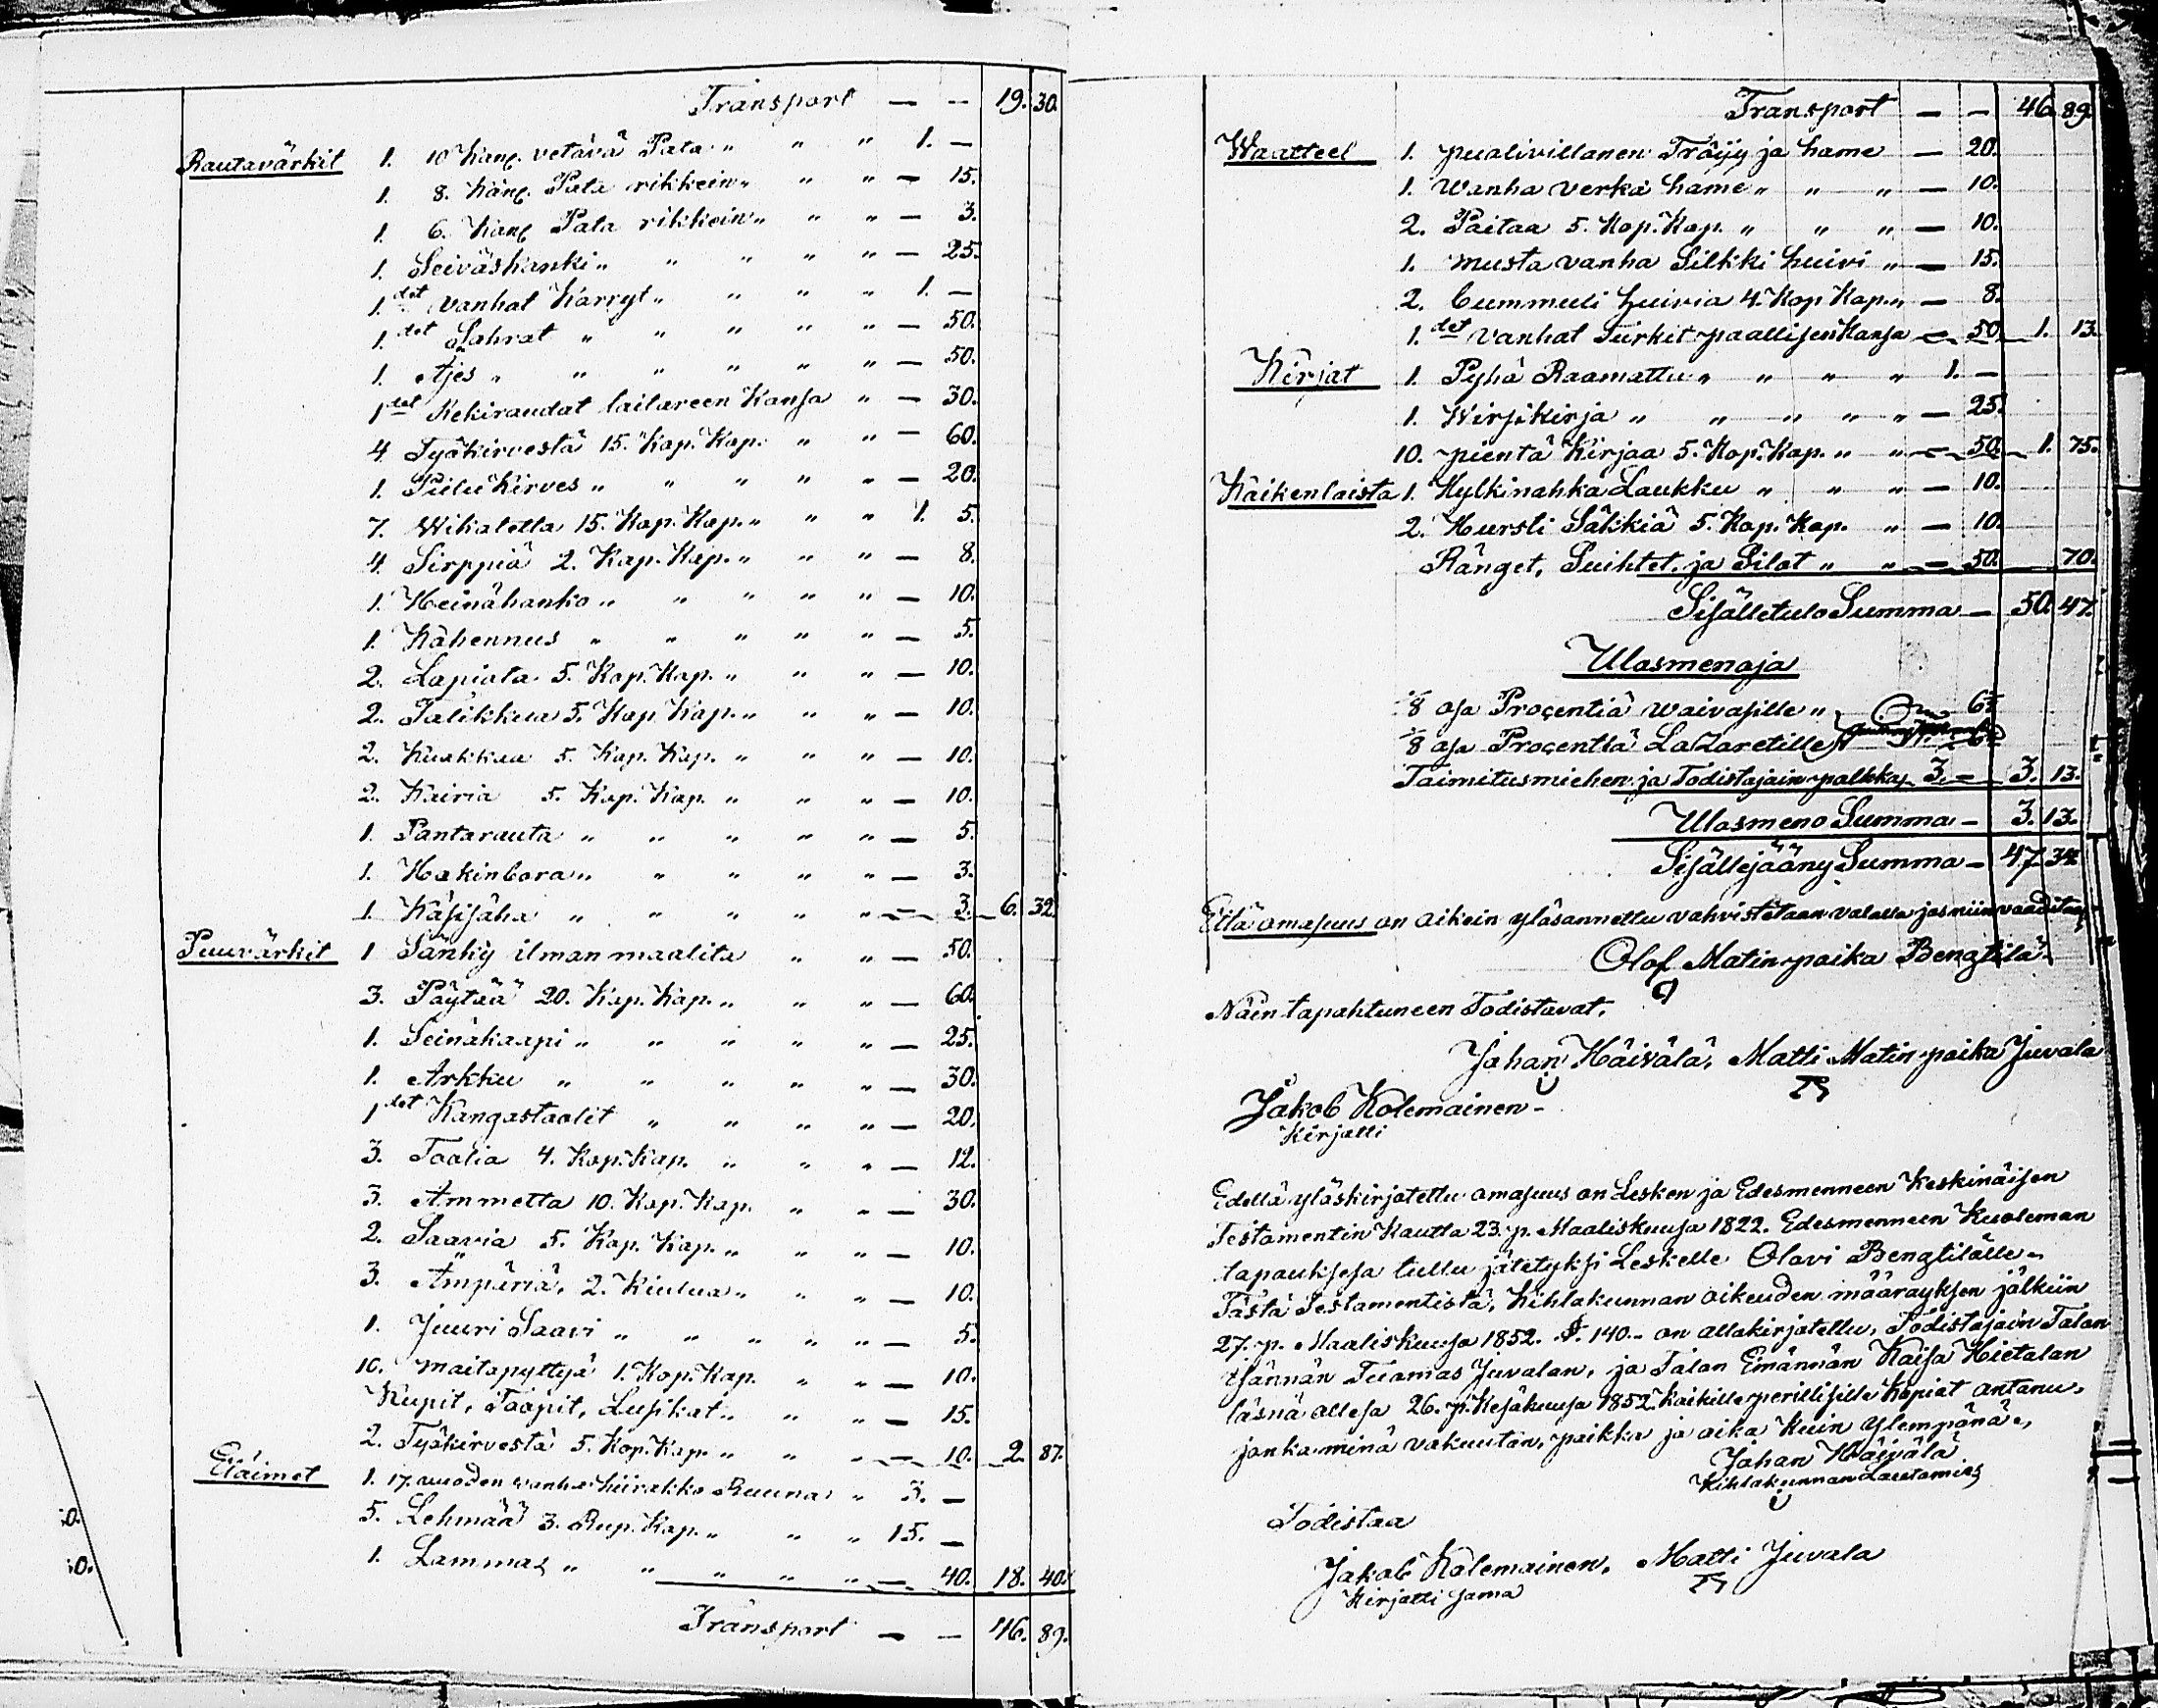 Transport — — 19. 30.
Rautavärkit 1. 10 kan. vetävä Pata " " " 1. —
1. 8. kan. Pata rikkein " " " — 15.
1. 6. kan. Pata rikkein " " " — 3.
1. Seiväshanki " " " " " — 25.
1. det vanhat Kärryt " " " " 1. —
1. det Sahrat " " " " " — 50.
1. Ajes " " " " " — 50.
1 det Rekiraudat laitareen Kansa " — 30.
4. Työkirvestä 15. Kop. Kap. " " — 60.
1. Piilu Kirves " " " " " — 20.
7. Wikatetta 15. Kop. Kap. " " " 1. 5.
4. Sirppiä 2. Kop. Kap. " " " — 8.
1. Heinähanko " " " " " — 10.
1. Kähennus " " " " " — 5.
2. Lapiata 5. Kop. Kap. " " " — 10.
2. Talikkua 5. Kop. Kap. " " " — 10.
2. Kuakkaa 5. Kop. Kap. " " " — 10.
2. Kairia 5. Kop. Kap. " " " — 10.
1. Pantarauta " " " " " — 5.
1. Hakinbora " " " " " — 3.
1. Käsisaha " " " " " — 3. 6. 32.
Puuvärkit 1 Sänky ilman maalita " " — 50.
3. Päytää 20. Kop. Kap. " " " — 60.
1. Seinäkaapi " " " " " — 25.
1. Arkku " " " " " — 30.
1 det Kangastaolit " " " " — 20.
3. Taolia 4. Kop. Kap. " " " — 12.
3. Ammetta 10. Kop. Kap. " " — 30.
2. Saavia 5. Kop. Kap. " " " — 10.
3. Ämpäriä, 2. Kiulua " " " — 10.
1. Juuri Saavi " " " " " — 5.
10. maitapyttyä 1. Kop. Kap. " " — 10.
Kupit, Taopit, Lusikat " " " — 15.
2. Työkirvestä 5. Kop. Kap. " " " — 10. 2. 87.
Eläimet 1. 17. vuoden vanha hiirakko Ruuna " 3. —
5. Lehmää 3. Rup. Kap. " " " 15. —
1. Lammas " " " " " — 40. 18. 40.
Transport — — 46. 89.
Transport — — 46. 89.
Waatteet 1. puolivillanen Tröyy ja hame — 20.
1. Wanha verka hame " " " — 10.
2. Paitaa 5. Kop. Kap. " " " — 10.
1. musta vanha Silkki huivi " — 15.
2. Cummuli huivia 4. Kop. Kap. " — 8.
1. det Vanhat Turkit paallisen Kansa — 50. 1. 13.
Kirjat 1. Pyhä Raamattu " " " " 1. —
1. Wirsikirja " " " " " — 25.
10. pientä Kirjaa 5. Kop. Kap. " " — 50. 1. 75.
Kaikenlaista 1. Hylkinahka Laukku " " " — 10.
2. Hursti Säkkiä 5. Kop. Kap. " — 10.
Ränget, Suihtet, ja Silat " " — 50. 70.
Sisälletulo Summa — 50. 47.
Ulasmenoja
1/8 osa Proçentiä waivasille " 6½
1/8 osa Proçentiä Lazaretille 6½
Taimitusmiehen ja Todistajain palkka 3. — 3. 13.
Ulasmeno Summa — 3. 13.
Sisällejääny Summa — 47 34.
Että omasuus on oikein yläsannettu vahvistetaan valalla jos niin vaaditaan
Olof Matinpoika Bengtilä
Näin tapahtuneen Todistavat,
Johan Häivälä, Matti Matinpoika Juvala
Jakob Kolemainen –
Kirjatti
Edellä yläskirjotettu omasuus on Lesken ja Edesmenneen Keskinäisen
Testamentin Kautta 23. p. Maaliskuusa 1822. Edesmenneen Kuoleman
tapauksesa tullu jätetyksi Leskelle Olavi Bengtilälle –
Tästä Testamentistä, Kihlakunnan oikeuden määräyksen jälkiin
27. p. Maaliskuusa 1852. §. 140. – on allakirjotettu, Todistajain Talon
isännän Tuamas Juvalan, ja Talon Emännän Kaisa Hietalan
läsnä ollesa 26. p. Kesäkuusa 1852 kaikille perillisille Kopiat antanu,
jonka minä vakuutan, paikka ja aika kuin ylempänä,
Johan Häivälä
Kihlakunnan Lautamies
Todistaa
Jakob Kolemainen, Matti Juvala
Kirjatti sama